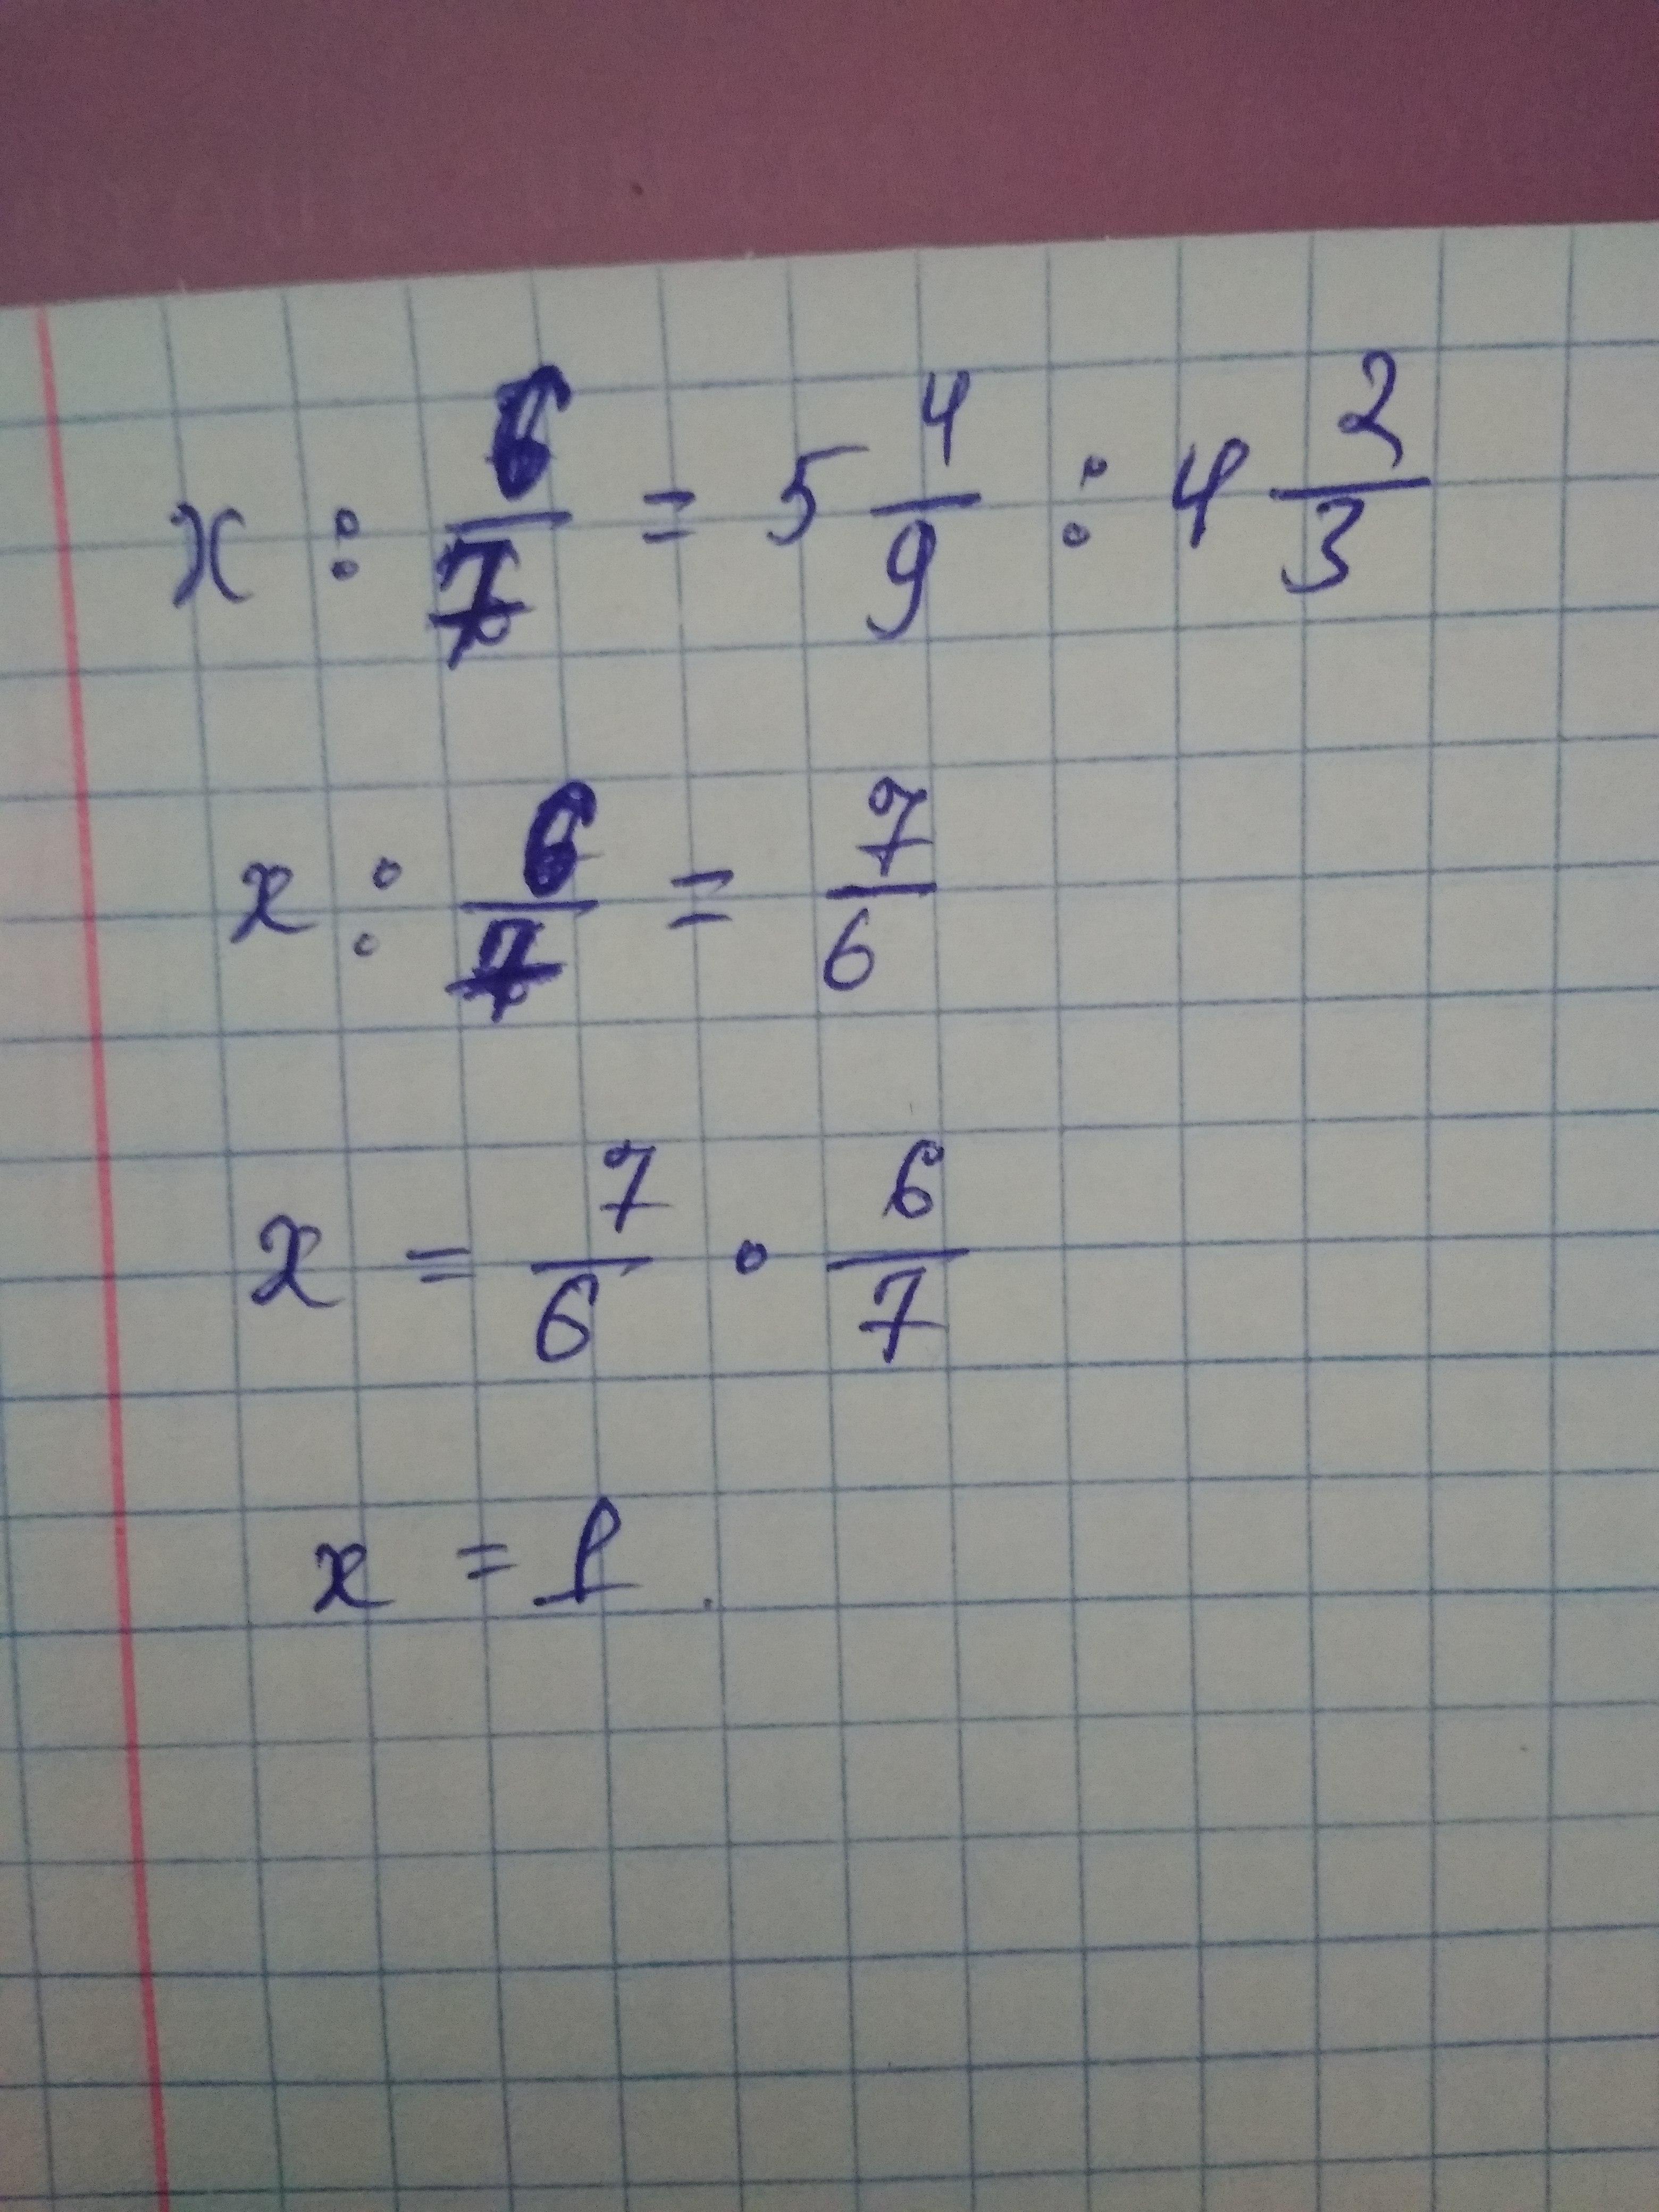 x : 6/7 = 5 4/9 : 4 2/3
x : 6/7 = 7/6
x = 7/6 · 6/7
x = 1.